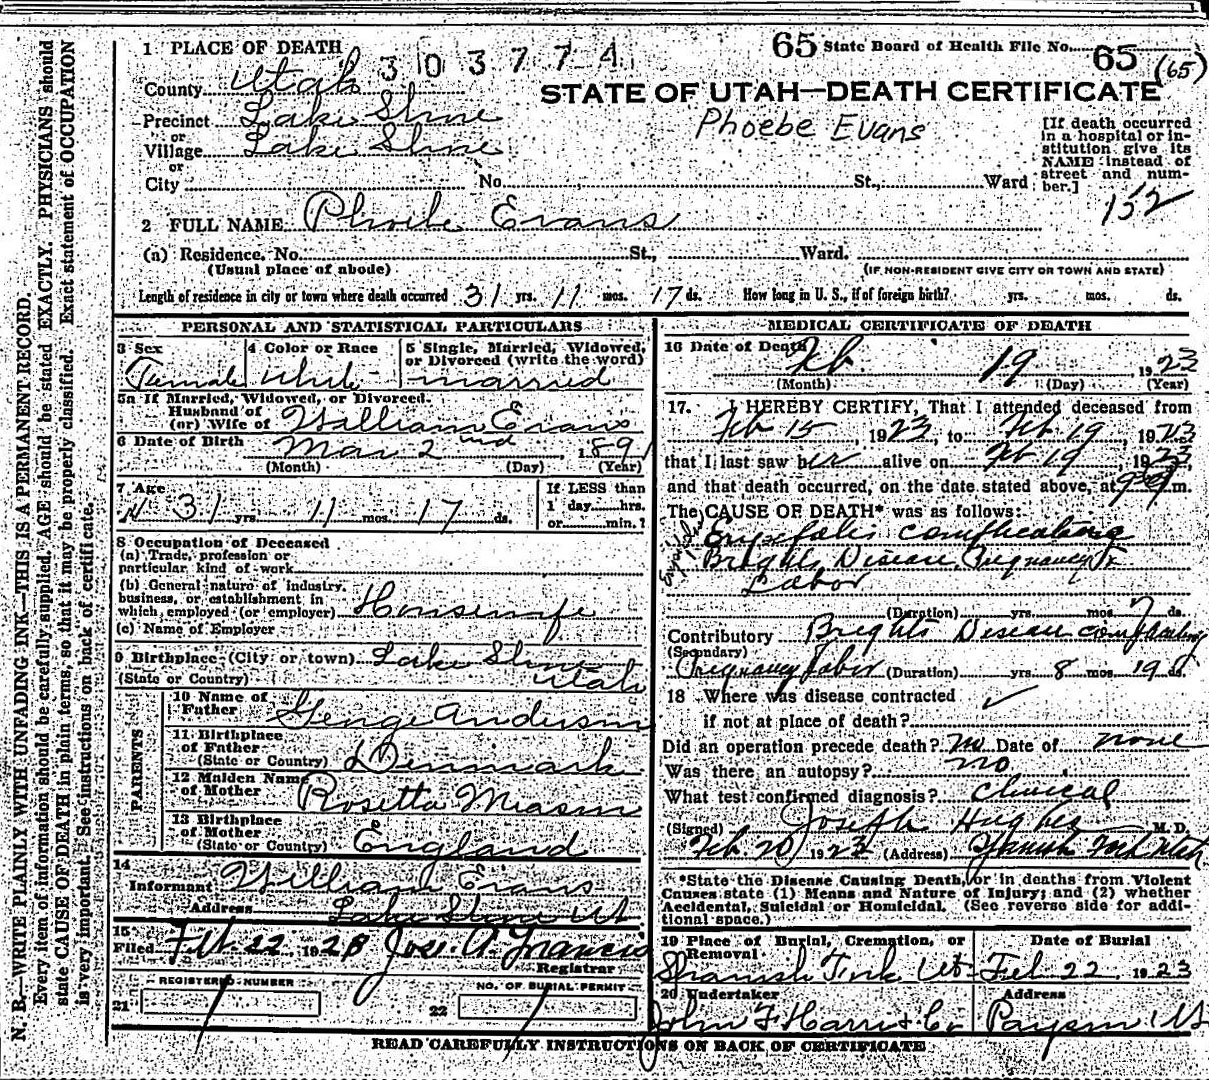 1 PLACE OF DEATH
303774
65 State Board of Health File No. 65 (65)
County Utah
STATE OF UTAH—DEATH CERTIFICATE
Precinct Lake Shore
Phoebe Evans
or
Village Lake Shore
or
City No. St., Ward
[If death occurred
in a hospital or in-
stitution give its
NAME instead of
street and num-
ber.]
152
2 FULL NAME Phoebe Evans
(a) Residence. No. St., Ward.
(Usual place of abode) (IF NON-RESIDENT GIVE CITY OR TOWN AND STATE)
Length of residence in city or town where death occurred 31 yrs. 11 mos. 17 ds. How long in U. S., if of foreign birth? yrs. mos. ds.
PERSONAL AND STATISTICAL PARTICULARS
3 Sex
Female
4 Color or Race
White
5 Single, Married, Widowed,
or Divorced (write the word)
married
5a If Married, Widowed, or Divorced.
Husband of
(or) Wife of William Evans
6 Date of Birth Mar 2nd 1891
(Month) (Day) (Year)
7 Age
31 yrs. 11 mos. 17 ds.
If LESS than
1 day....hrs.
or......min.?
8 Occupation of Deceased
(a) Trade, profession or
particular kind of work
(b) General nature of industry,
business, or establishment in
which employed (or employer) Housewife
(c) Name of Employer
9 Birthplace (City or town) Lake Shore
(State or Country) Utah
PARENTS
10 Name of
Father George Anderson
11 Birthplace
of Father
(State or Country) Denmark
12 Maiden Name
of Mother Rosetta
13 Birthplace
of Mother
(State or Country) England
14
Informant William Evans
Address Lake Shore Ut
15
Filed Feb. 22 1923 Jos. A. Francis
Registrar
REGISTERED NUMBER
21
NO. OF BURIAL PERMIT
22
MEDICAL CERTIFICATE OF DEATH
16 Date of Death
Feb 19 1923
(Month) (Day) (Year)
17. I HEREBY CERTIFY, That I attended deceased from
Feb 15, 1923, to Feb 19, 1923
that I last saw her alive on Feb 19 1923,
and that death occurred, on the date stated above, at m.
The CAUSE OF DEATH* was as follows:
Erysipelas complicating
Brights Disease Pregnancy &
Labor
(Duration) yrs. mos. 7 ds.
Contributory Brights Disease complicating
(Secondary)
Pregnancy Labor (Duration) yrs. 8 mos. 19 ds.
18 Where was disease contracted ✓
if not at place of death?
Did an operation precede death? no Date of none
Was there an autopsy? no
What test confirmed diagnosis? Clinical
(Signed) Joseph Hughes M. D.
Feb 20 1923 (Address) Spanish Fork Utah
*State the Disease Causing Death, or in deaths from Violent
Causes state (1) Means and Nature of Injury; and (2) whether
Accidental, Suicidal or Homicidal. (See reverse side for addi-
tional space.)
19 Place of Burial, Cremation, or
Removal
Spanish Fork Ut
Date of Burial
Feb 22 1923
20 Undertaker
John F Harris Co
Address
Payson Ut
READ CAREFULLY INSTRUCTIONS ON BACK OF CERTIFICATE
N. B.—WRITE PLAINLY WITH UNFADING INK—THIS IS A PERMANENT RECORD.
Every item of information should be carefully supplied. AGE should be stated EXACTLY. PHYSICIANS should
state CAUSE OF DEATH in plain terms, so that it may be properly classified. Exact statement of OCCUPATION
is very important. See instructions on back of certificate.